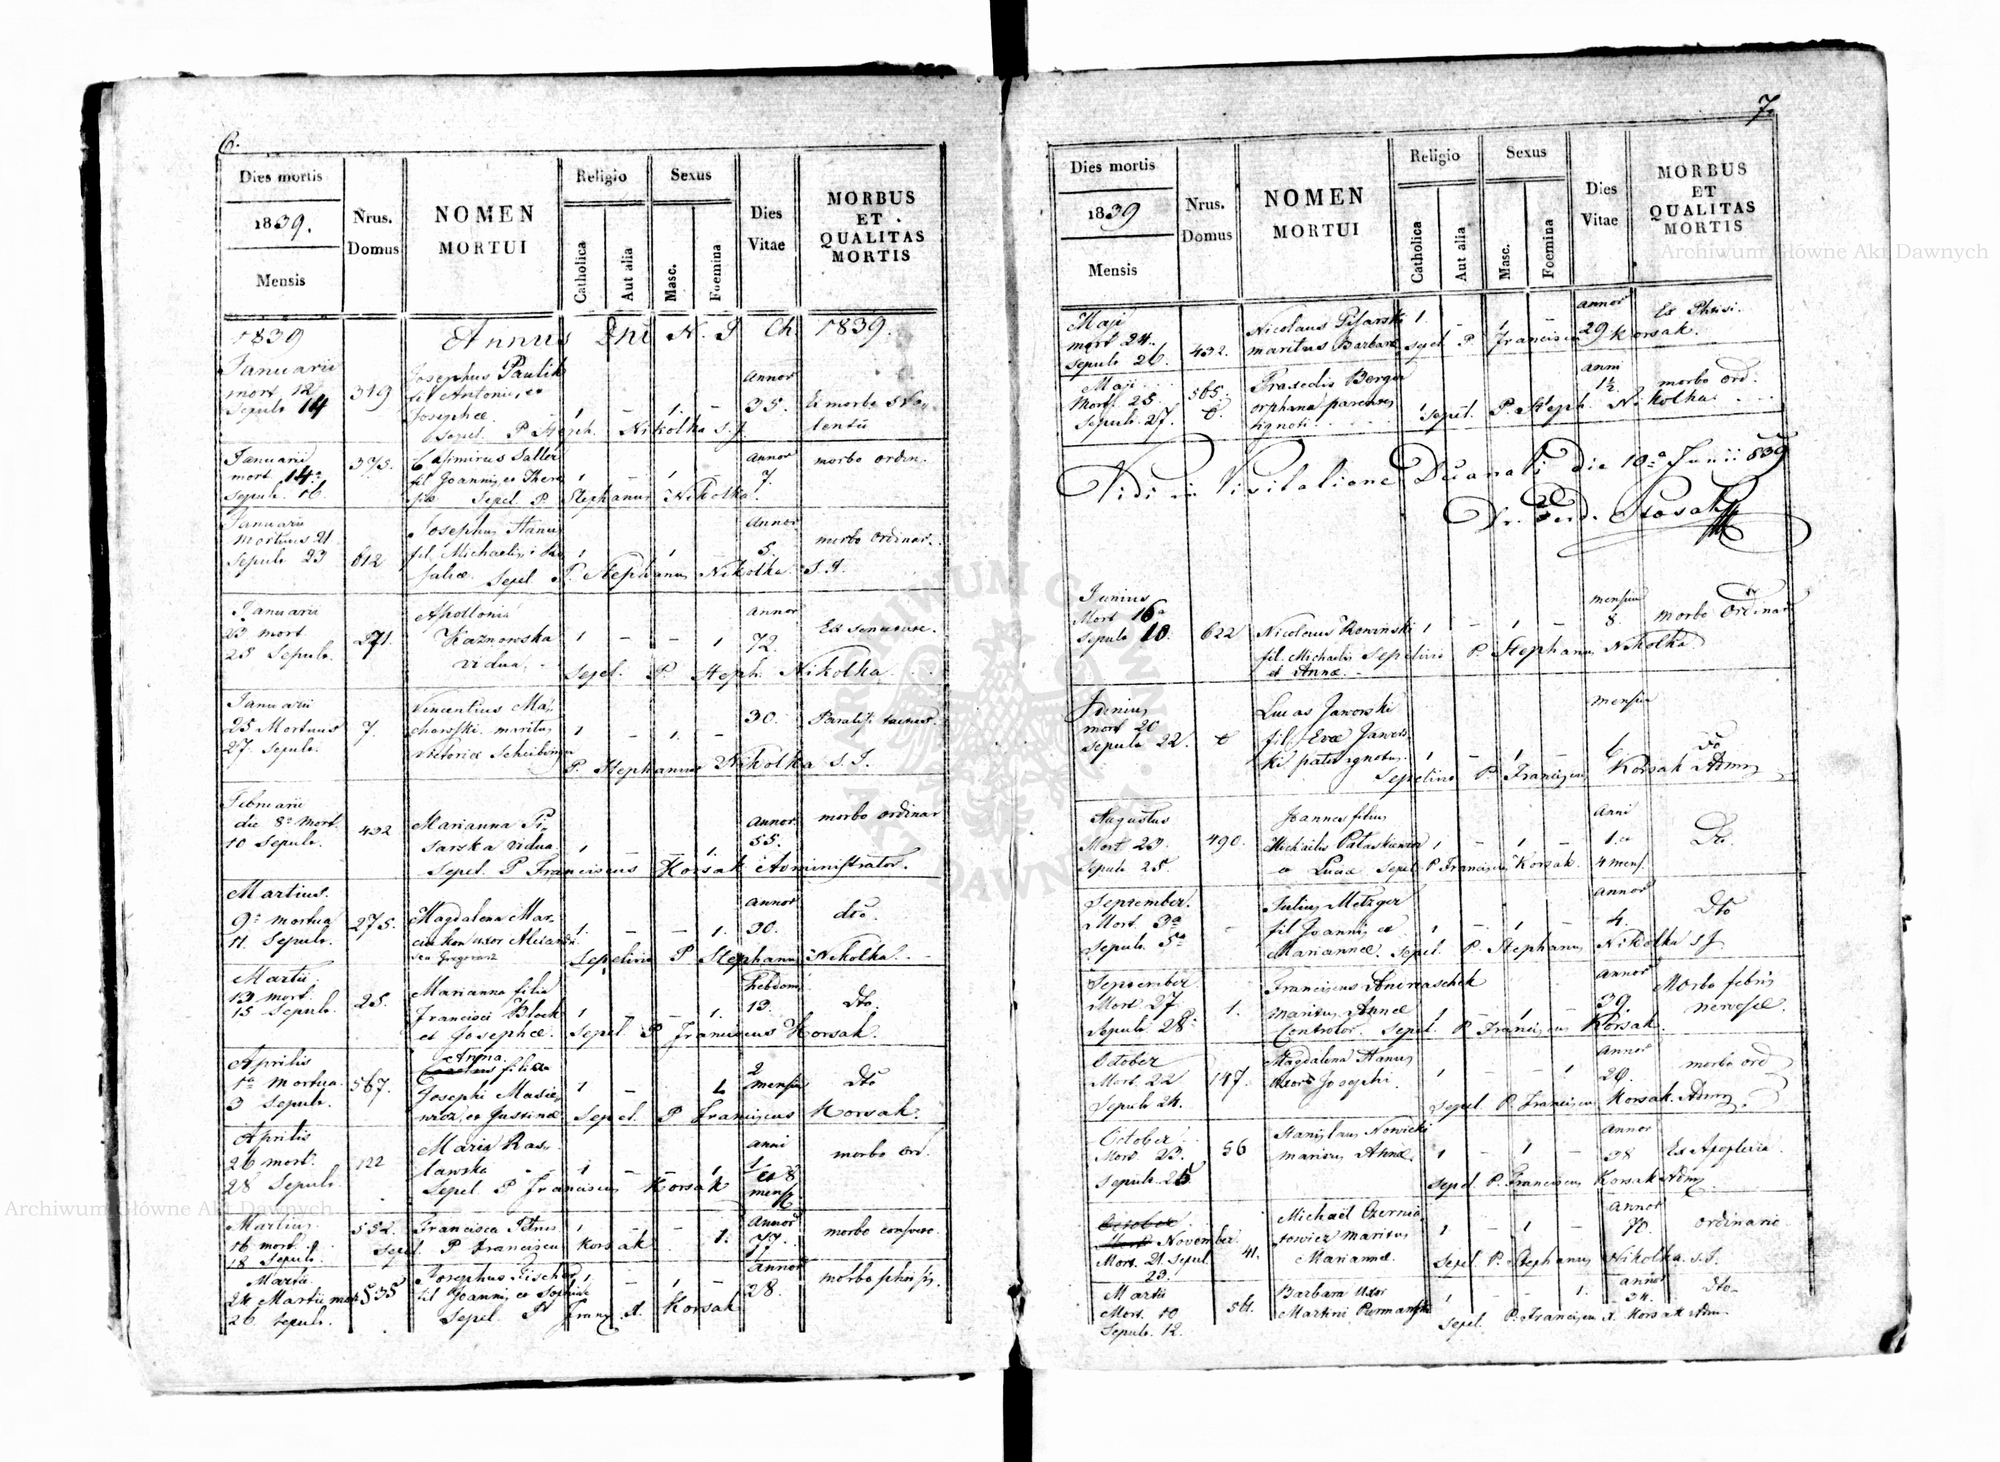 6.
Dies mortis
1839.
Mensis
Nrus.
Domus
NOMEN
MORTUI
Religio
Catholica
Aut alia
Sexus
Masc.
Foemina
Dies
Vitae
MORBUS
ET
QUALITAS
MORTIS
1839 Annus Dni N. J Ch. 1839.
Januarii
mort 12
Sepult 14
319
Josephus Paulik
fil Antonii, et
Josephae
Sepel. P Steph. Nikolka S. J.
1 - 1. -
annor
35.
Januarii
mort 14a
Sepult. 16
375.
Casimirus Saller
fil Joannis, et There
siae Sepel. P. Stephanus Nikolka.
1 - 1 -
annor
7.
morbo ordin.
Januarii
Mortuus 21.
Sepult 23
612
Josephus Hanus
fil. Michaelis
Sepel P. Stephanus Nikolka. S. J.
1 1 -
Annor
5.
morbo ordinar.
Januarii
23 mort
25 Sepult.
271.
Apollonia
Kaznowska
vidua.
1 - - 1
annor
72.
Sepel. P Steph. Nikolka
Januarii
25 Mortuus
27. Sepult.
7.
Vincentius Ma
chowski. maritus
Victoriae
1 - 1. -
30.
P. Stephanus Nikolka S. J.
Februarii
die 8a Mort.
10 Sepult.
432
Marianna Pi
sarska vidua
1 - - 1.
annor.
55.
morbo ordinar
Sepel. P Franciscus Korsak Administrator.
Martius.
9a mortua
11. Sepult.
275.
Magdalena Mar
uxor
1. - - 1.
annor
30.
dto.
Sepelivit P Stephanus Nikolka.
Martii
13 mort.
15 Sepult.
25.
Marianna filia
Francisci Block
et Josephae
1 - - 1.
hebdom
13.
dto.
Sepel P Franciscus Korsak.
Aprilis
1a Mortua.
3 Sepult.
567.
Anna
filia
Josephi
et Justinae
1 - 1
2
mensiu
dto
Sepel. P Franciscus Korsak.
Aprilis
26 mort.
28 Sepult.
122
Maria Ras
lawska
1 - - 1
anni
1
et 8
mens
morbo ord.
Sepel P Franciscus Korsak
Martius.
16 mort.
18 Sepult.
552.
Francisca Petrus
1 - - 1.
Annor
morbo
Sepel. P Franciscus Korsak
Martii
24 Martii mort
26 Sepult.
535
Josephus Fischer
fil Joannis et Sophiae
1 - 1 -
annor
28.
Sepel P Franz X. Korsak
7.
Dies mortis
1839
Mensis
Nrus.
Domus
NOMEN
MORTUI
Religio
Catholica
Aut alia
Sexus
Masc.
Foemina
Dies
Vitae
MORBUS
ET
QUALITAS
MORTIS
Maji
mort 24.
Sepult 26.
432.
Nicolaus Pisarski
maritus Barbarae
1. - 1 -
annor
29
Ex Phtisi.
Sepel P. Franciscus Korsak.
Maji
Mort. 25
Sepult. 27.
565.
Praxedis Berger
orphana parentes
ignoti
1
anni
1½
morbo ord.
Sepel. P. Steph. Nikolka
Vidi in Visitatione Decanali die 10a Junii 839
Junius
Mort 16a
Sepult 18.
622
Nicolaus Rowinski
fil. Michaelis
et Annae.
1 - 1 -
mensiu
8.
morbo Ordinar
Sepelivit P. Stephanus Nikolka
Junius
mort 20
Sepult 22.
Lucas Jaworski
fil. Evae Jawors
ki patris ignotus.
1 - 1 -
mensiu
6
dto
Sepelivit P. Franciscus Korsak Admin
Augustus
Mort 23
Sepult 25.
490.
Joannes filius
Michaelis
et Luciae
1 - 1 -
Anni
1 et
4 mens.
Dto.
Sepel P Franciscus Korsak.
September.
Mort. 3a
Sepult. 5a
-
Julius Metzger
fil Joannis et
Mariannae.
1 - 1 -
annor
4.
Dto
Sepel P. Stephanus Nikolka S J
September
Mort 27
Sepult 28.
1.
Franciscus Andreaschek
maritus Annae
Controlor.
1 - 1 -
annor
39.
Morbo febris
nervosae.
Sepel. P. Franciscus Korsak.
October
Mort. 22
Sepult 24.
147.
Magdalena Hanus
uxor Josephi.
1 - - 1
Annor
morbo ord
Sepel P. Franciscus Korsak. Admin.
October
Mort. 23.
Sepult. 25
56
Stanislaus Nowicki
maritus Annae.
1 - 1 -
Annor
38
Ex Apoplexia.
Sepel P. Franciscus Korsak Admin.
November.
Mort. 21. Sepul
23.
41.
Michael Czernia
towicz maritus
Mariannae.
1 - 1 -
annor
70.
ordinario
Sepel P. Stephanus Nikolka. S. J.
Martii
Mort. 10
Sepult. 12.
Barbara Uxor
Martini
1 - - 1.
annor
34.
dto.
Sepel. P. Franciscus X. Korsak Adm.
ARCHIWUM GŁÓWNE AKT DAWNYCH
Archiwum Główne Akt Dawnych
Archiwum Główne Akt Dawnych